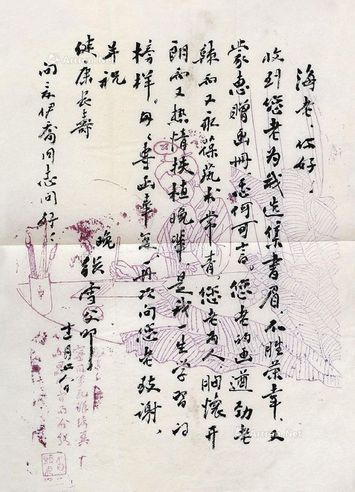 海老：您好。
收到您老为我选集书眉，不胜荣幸，又
蒙惠赠画册，感何可言。您老的画遒劲老
辣而又永葆艺术常青，您老为人胸怀开
朗而又热情扶植晚辈是我一生学习的
榜样。专此奉复，再次向您老致谢。
并祝
健康长寿
问夏伊乔同志问好
晚 张雪父叩
十一月廿八日